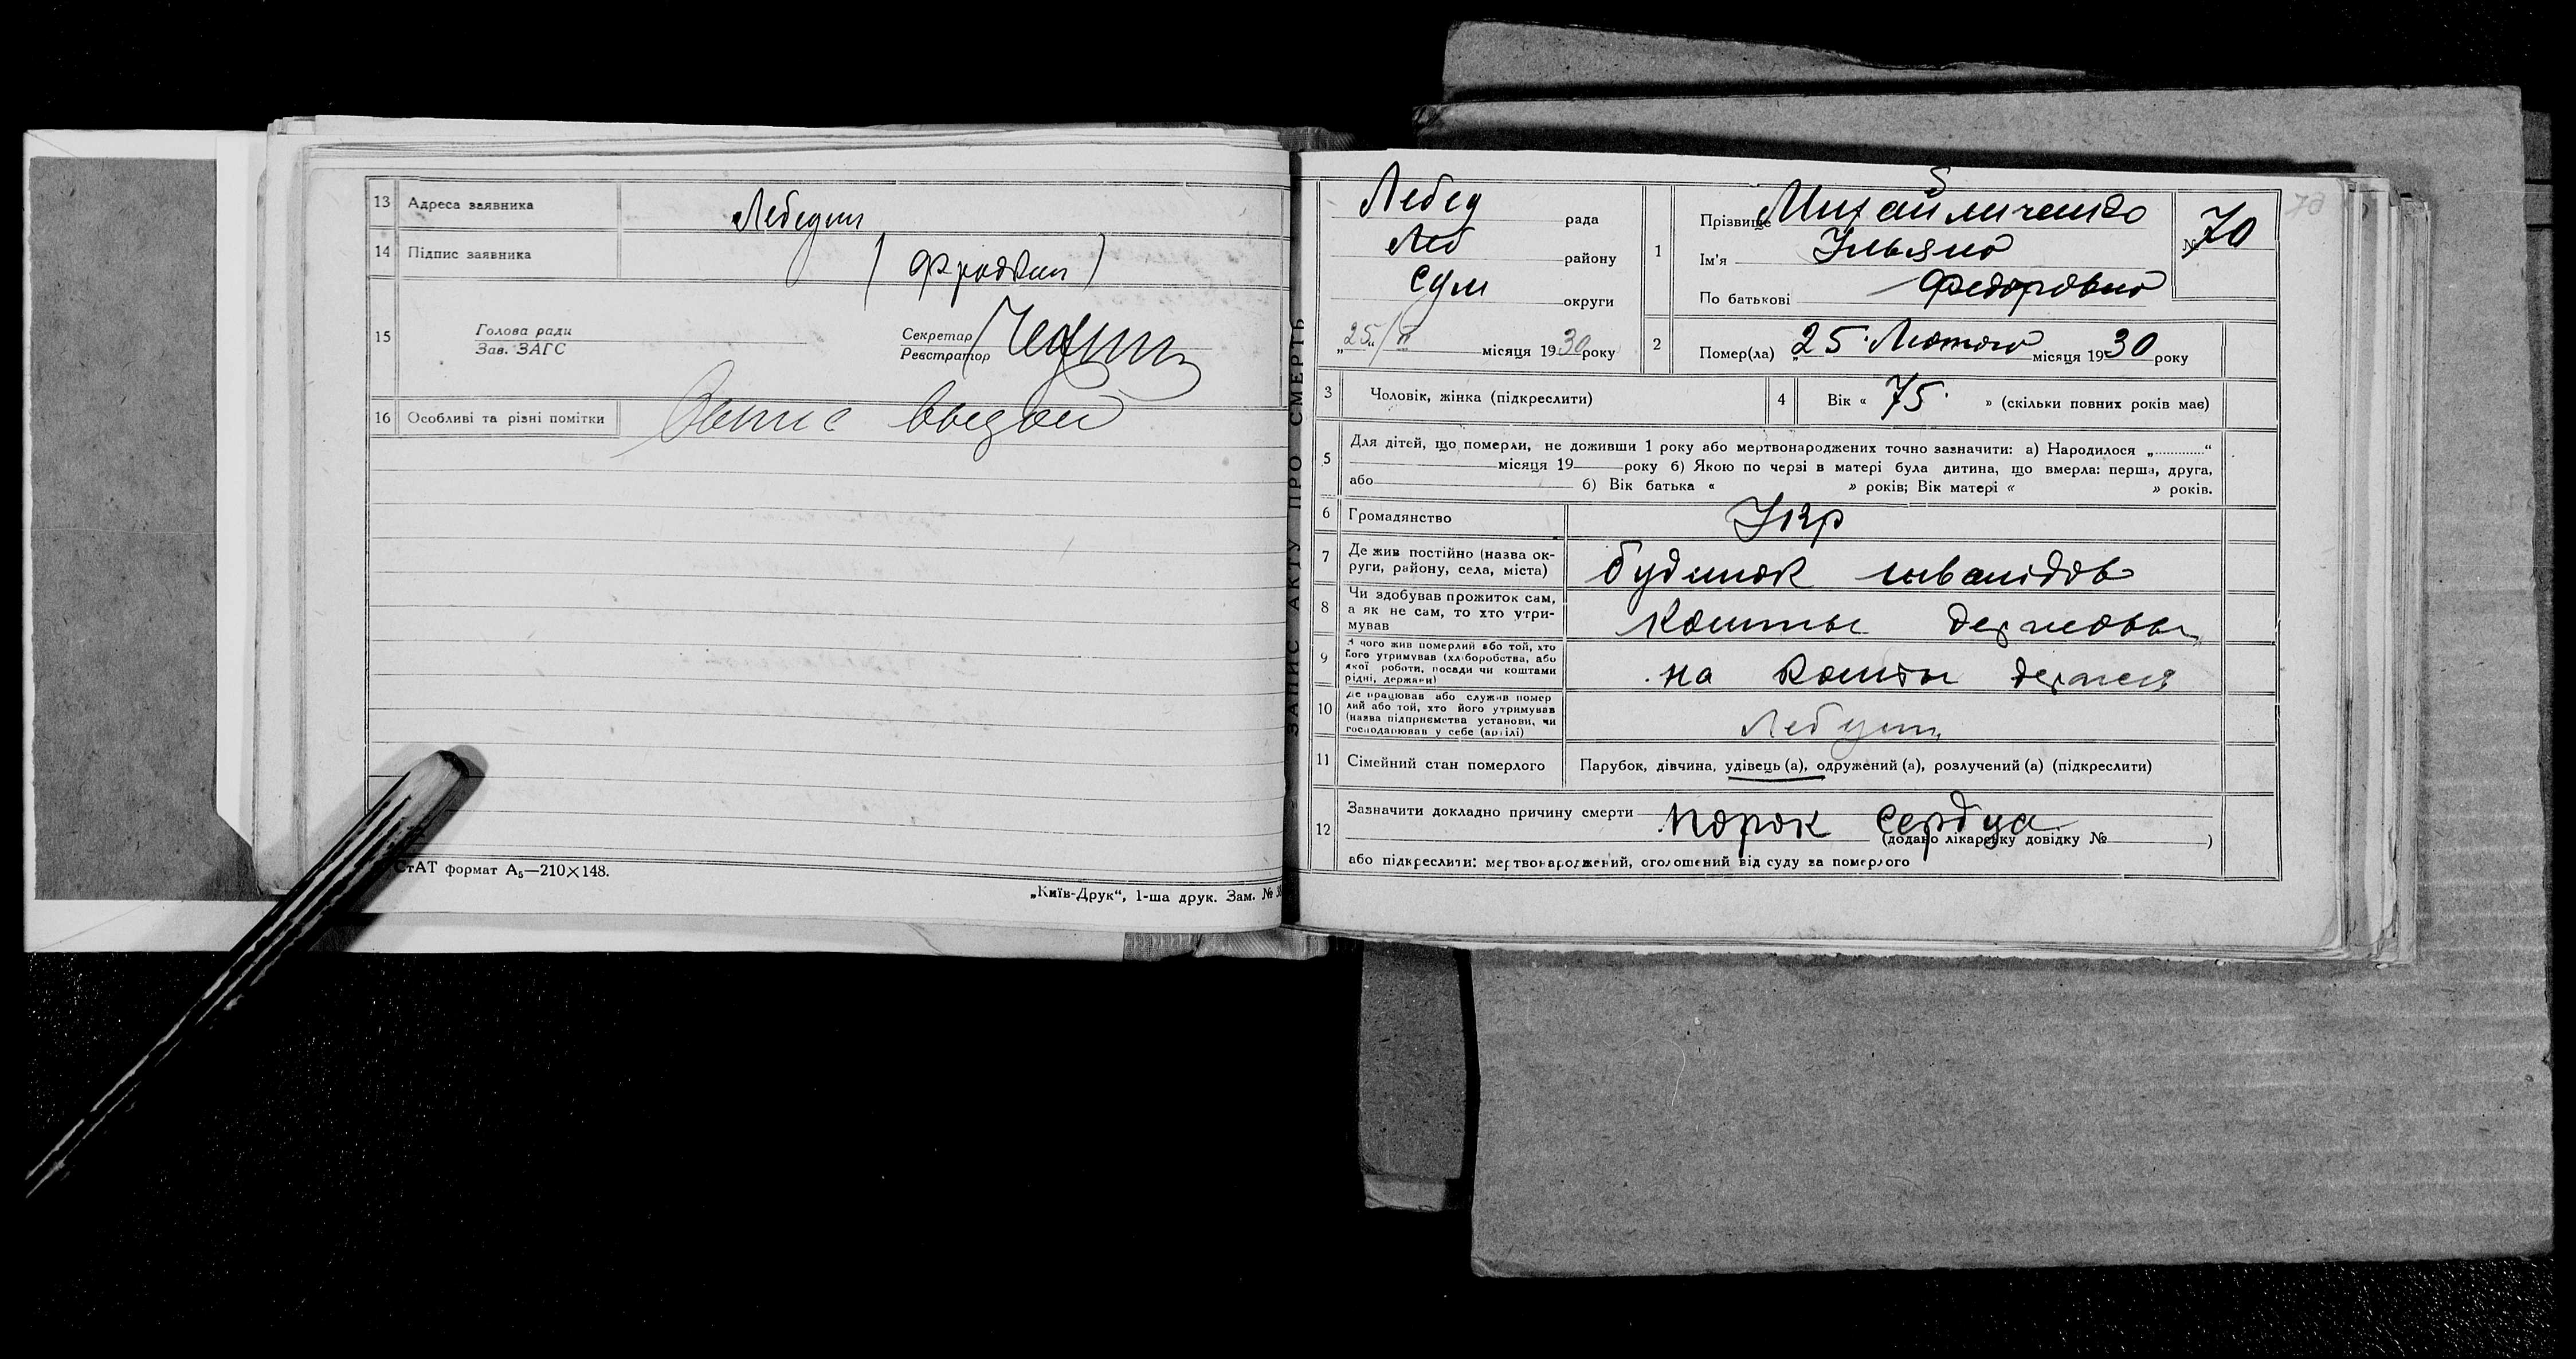 13 Адреса заявника Лебедин
14 Підпис заявника (Фрадкин)
15 Голова ради
Зав. ЗАГС
Секретар
Реєстратор
16 Особливі та різні помітки
СтАТ формат А5—210×148.
„Київ-Друк“, 1-ша друк. Зам. №
ЗАПИС АКТУ ПРО СМЕРТЬ
Лебед рада
Леб району
Сум округи
„25“/II місяця 1930 року
70
№ 70
1 Прізвище Михайличенко
Ім'я Ульяна
По батькові Федоровна
2 Помер(ла) „25 Лютого місяця 1930 року
3 Чоловік, жінка (підкреслити)
4 Вік « 75 » (скільки повних років має)
5 Для дітей, що померли, не доживши 1 року або мертвонароджених точно зазначити: а) Народилося „............“
місяця 19 року б) Якою по черзі в матері була дитина, що вмерла: перша, друга,
або б) Вік батька « » років; Вік матері « » років.
6 Громадянство Укр
7 Де жив постійно (назва ок-
руги, району, села, міста) будинок инвалідов
8 Чи здобував прожиток сам,
а як не сам, то хто утри-
мував Кошты державы
9 З чого жив померлий або той, хто
його утримував (хліборобства, або
якої роботи, посади чи коштами
рідні, держави) на кошты держав
10 Де працював або служив помер
лий або той, хто його утримував
(назва підприємства установи, чи
господарював у себе (артілі)
11 Сімейний стан померлого Парубок, дівчина, удівець (а), одружений (а), розлучений (а) (підкреслити)
12 Зазначити докладно причину смерти порок сердца
(додано лікарську довідку № )
або підкреслити: мертвонароджений, оголошений від суду за померлого